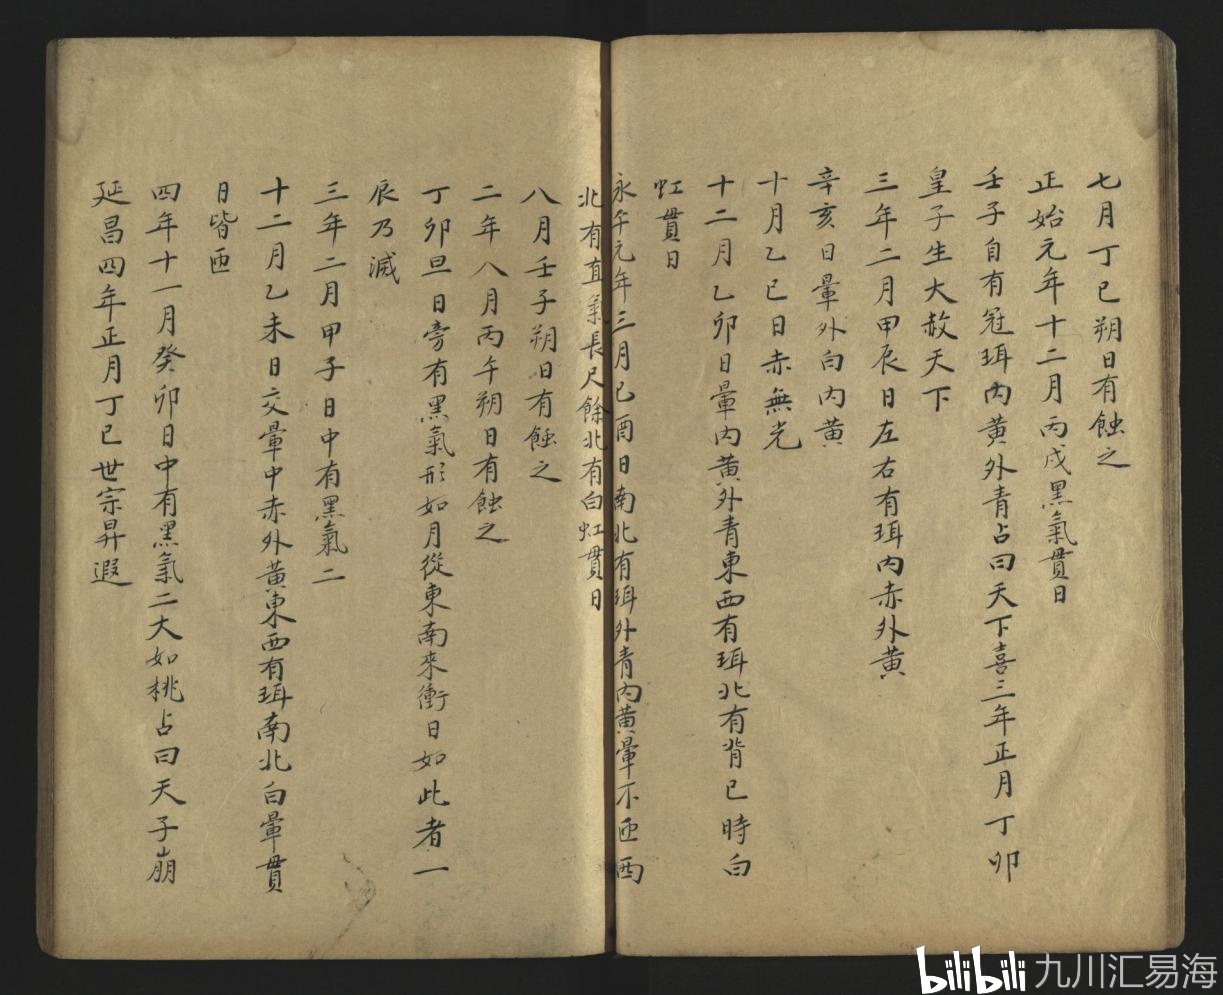 七月丁巳朔日有蝕之
正始元年十二月丙戌黑氣貫日
壬子自有冠珥內黃外青占曰天下喜三年正月丁卯
皇子生大赦天下
三年二月甲辰日左右有珥內赤外黃
辛亥日暈外白內黃
十月乙巳日赤無光
十二月乙卯日暈內黃外青東西有珥北有背巳時白
虹貫日
永平元年三月己酉日南北有珥外青內黃暈不匝西
北有直氣長尺餘北有白虹貫日
八月壬子朔日有蝕之
二年八月丙午朔日有蝕之
丁卯旦日旁有黑氣形如月從東南來衝日如此者一
辰乃滅
三年二月甲子日中有黑氣二
十二月乙未日交暈中赤外黃東西有珥南北白暈貫
日皆匝
四年十一月癸卯日中有黑氣二大如桃占曰天子崩
延昌四年正月丁巳世宗昇遐
bilibili 九川汇易海